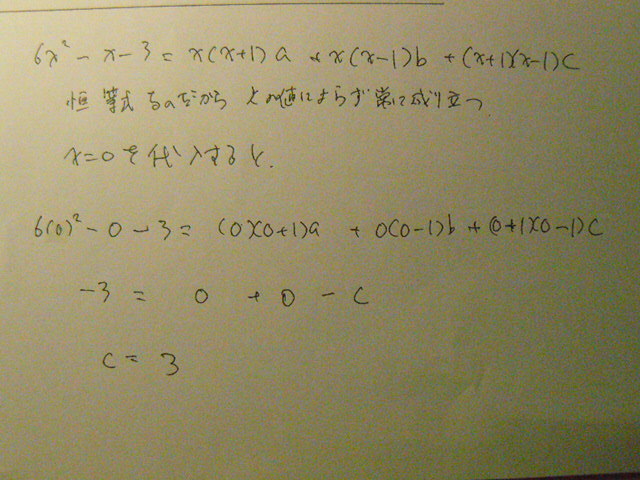 6x² - x - 3 = x(x+1)a + x(x-1)b + (x+1)(x-1)c
恒等式るのだから xの値によらず常に成り立つ
x=0を代入すると.
6(0)² - 0 - 3 = (0)(0+1)a + 0(0-1)b + (0+1)(0-1)c
-3 = 0 + 0 - c
c = 3